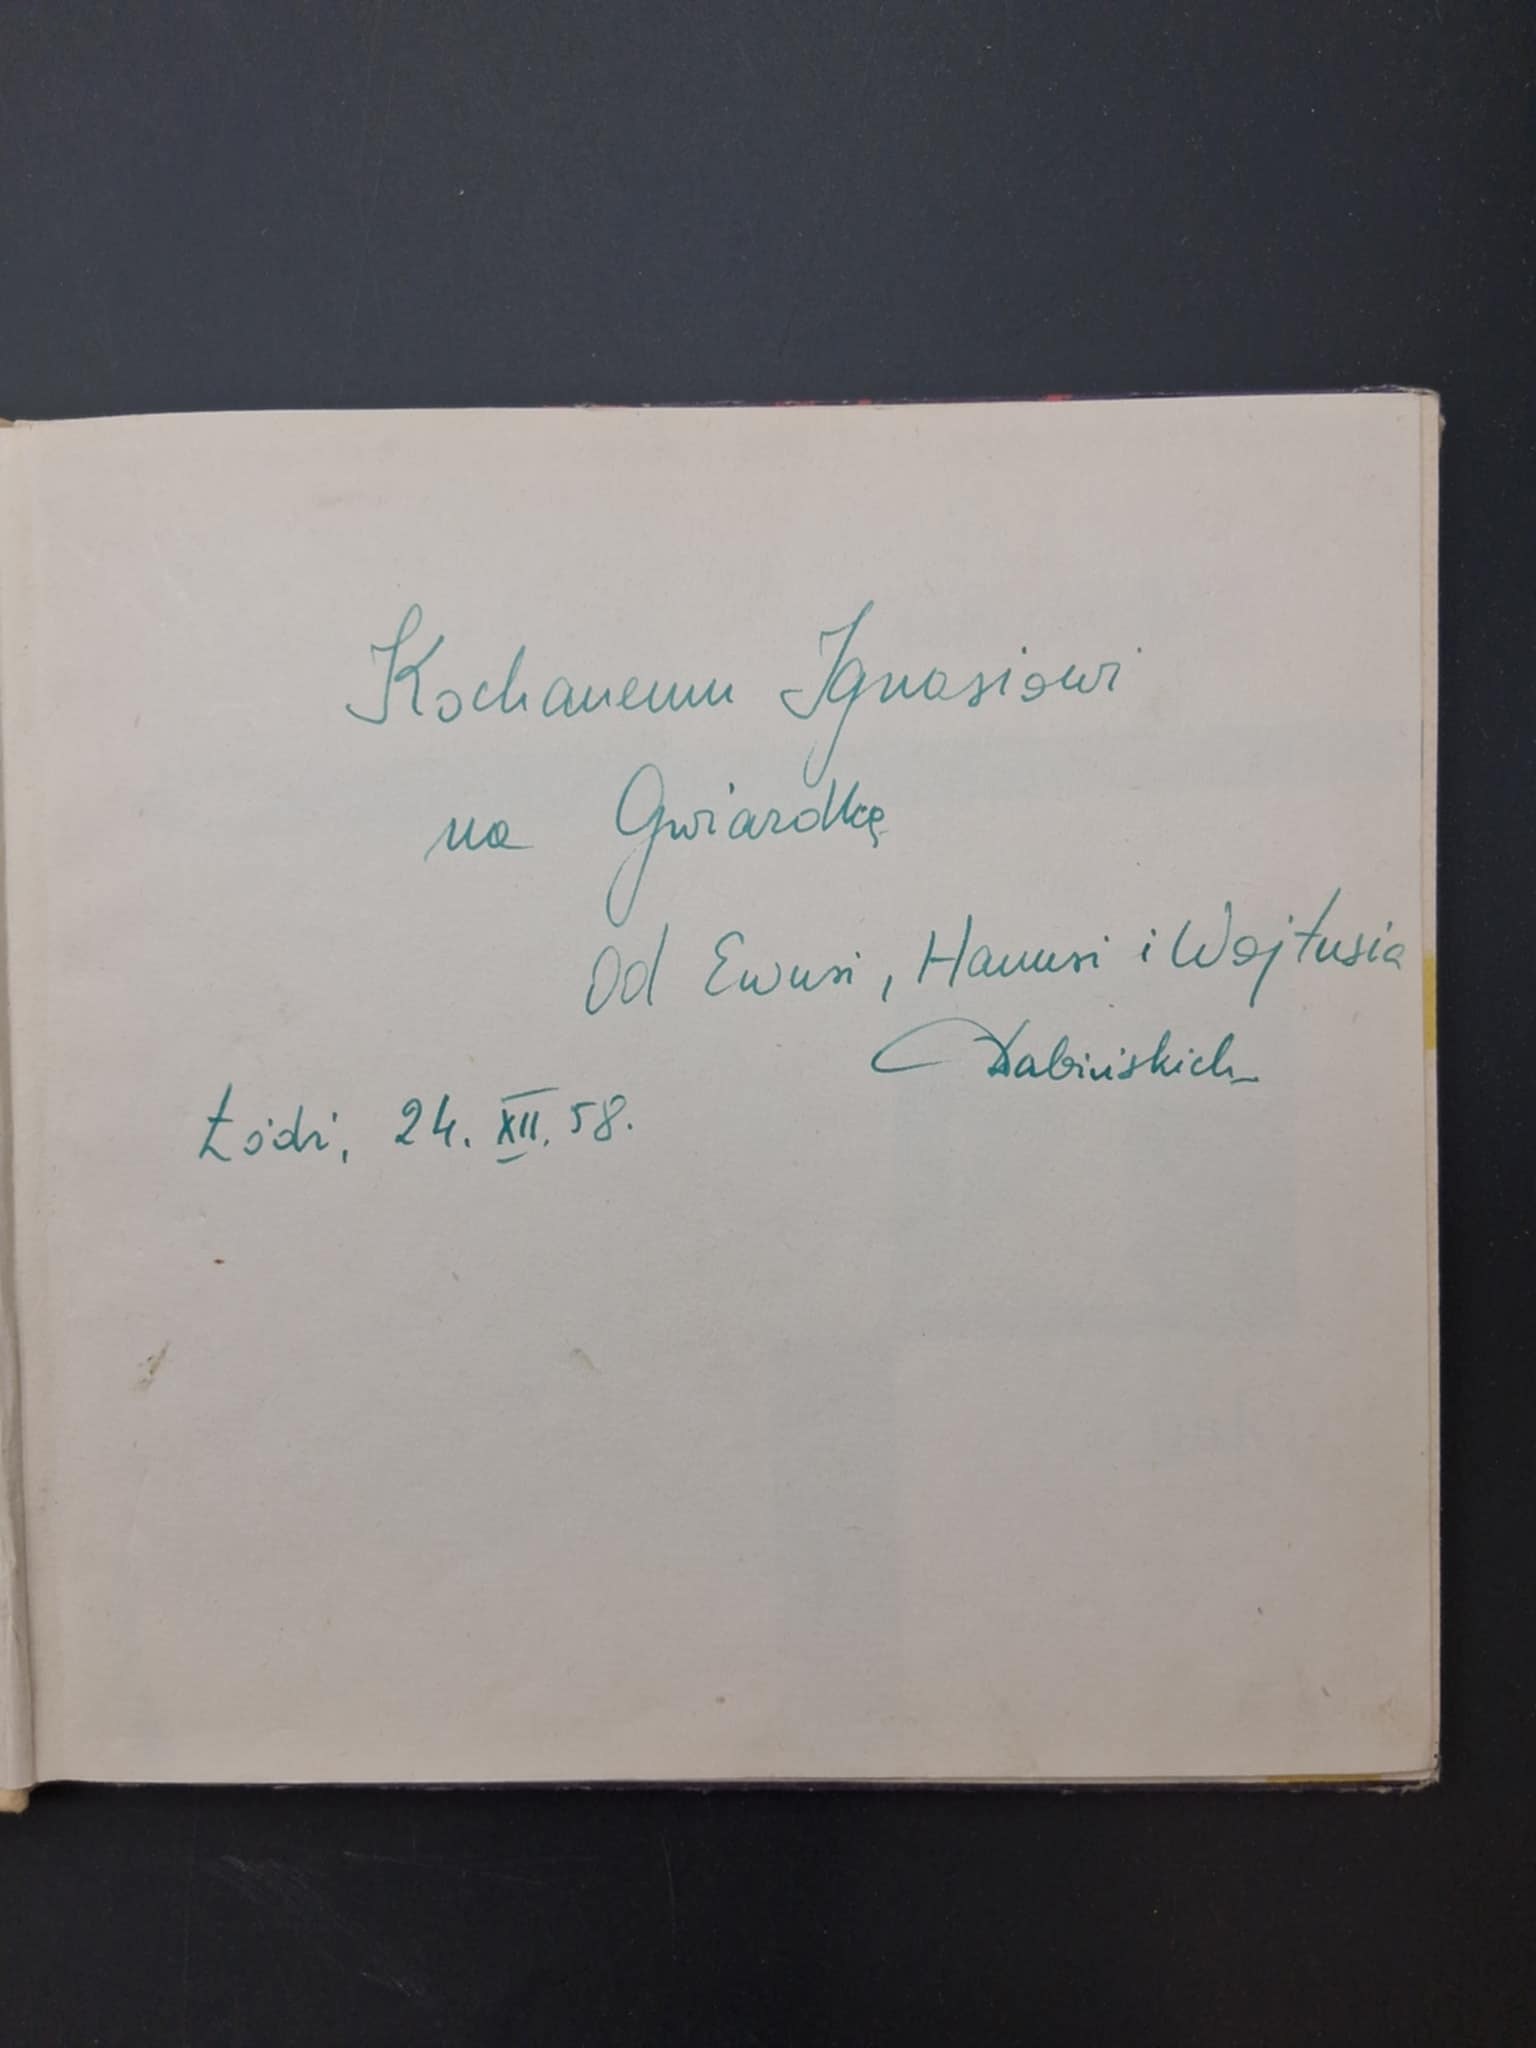 Kochanemu Ignasiowi
na Gwiazdkę
od Ewusi, Hanusi i Wojtusia
Łódź, 24. XII. 58.